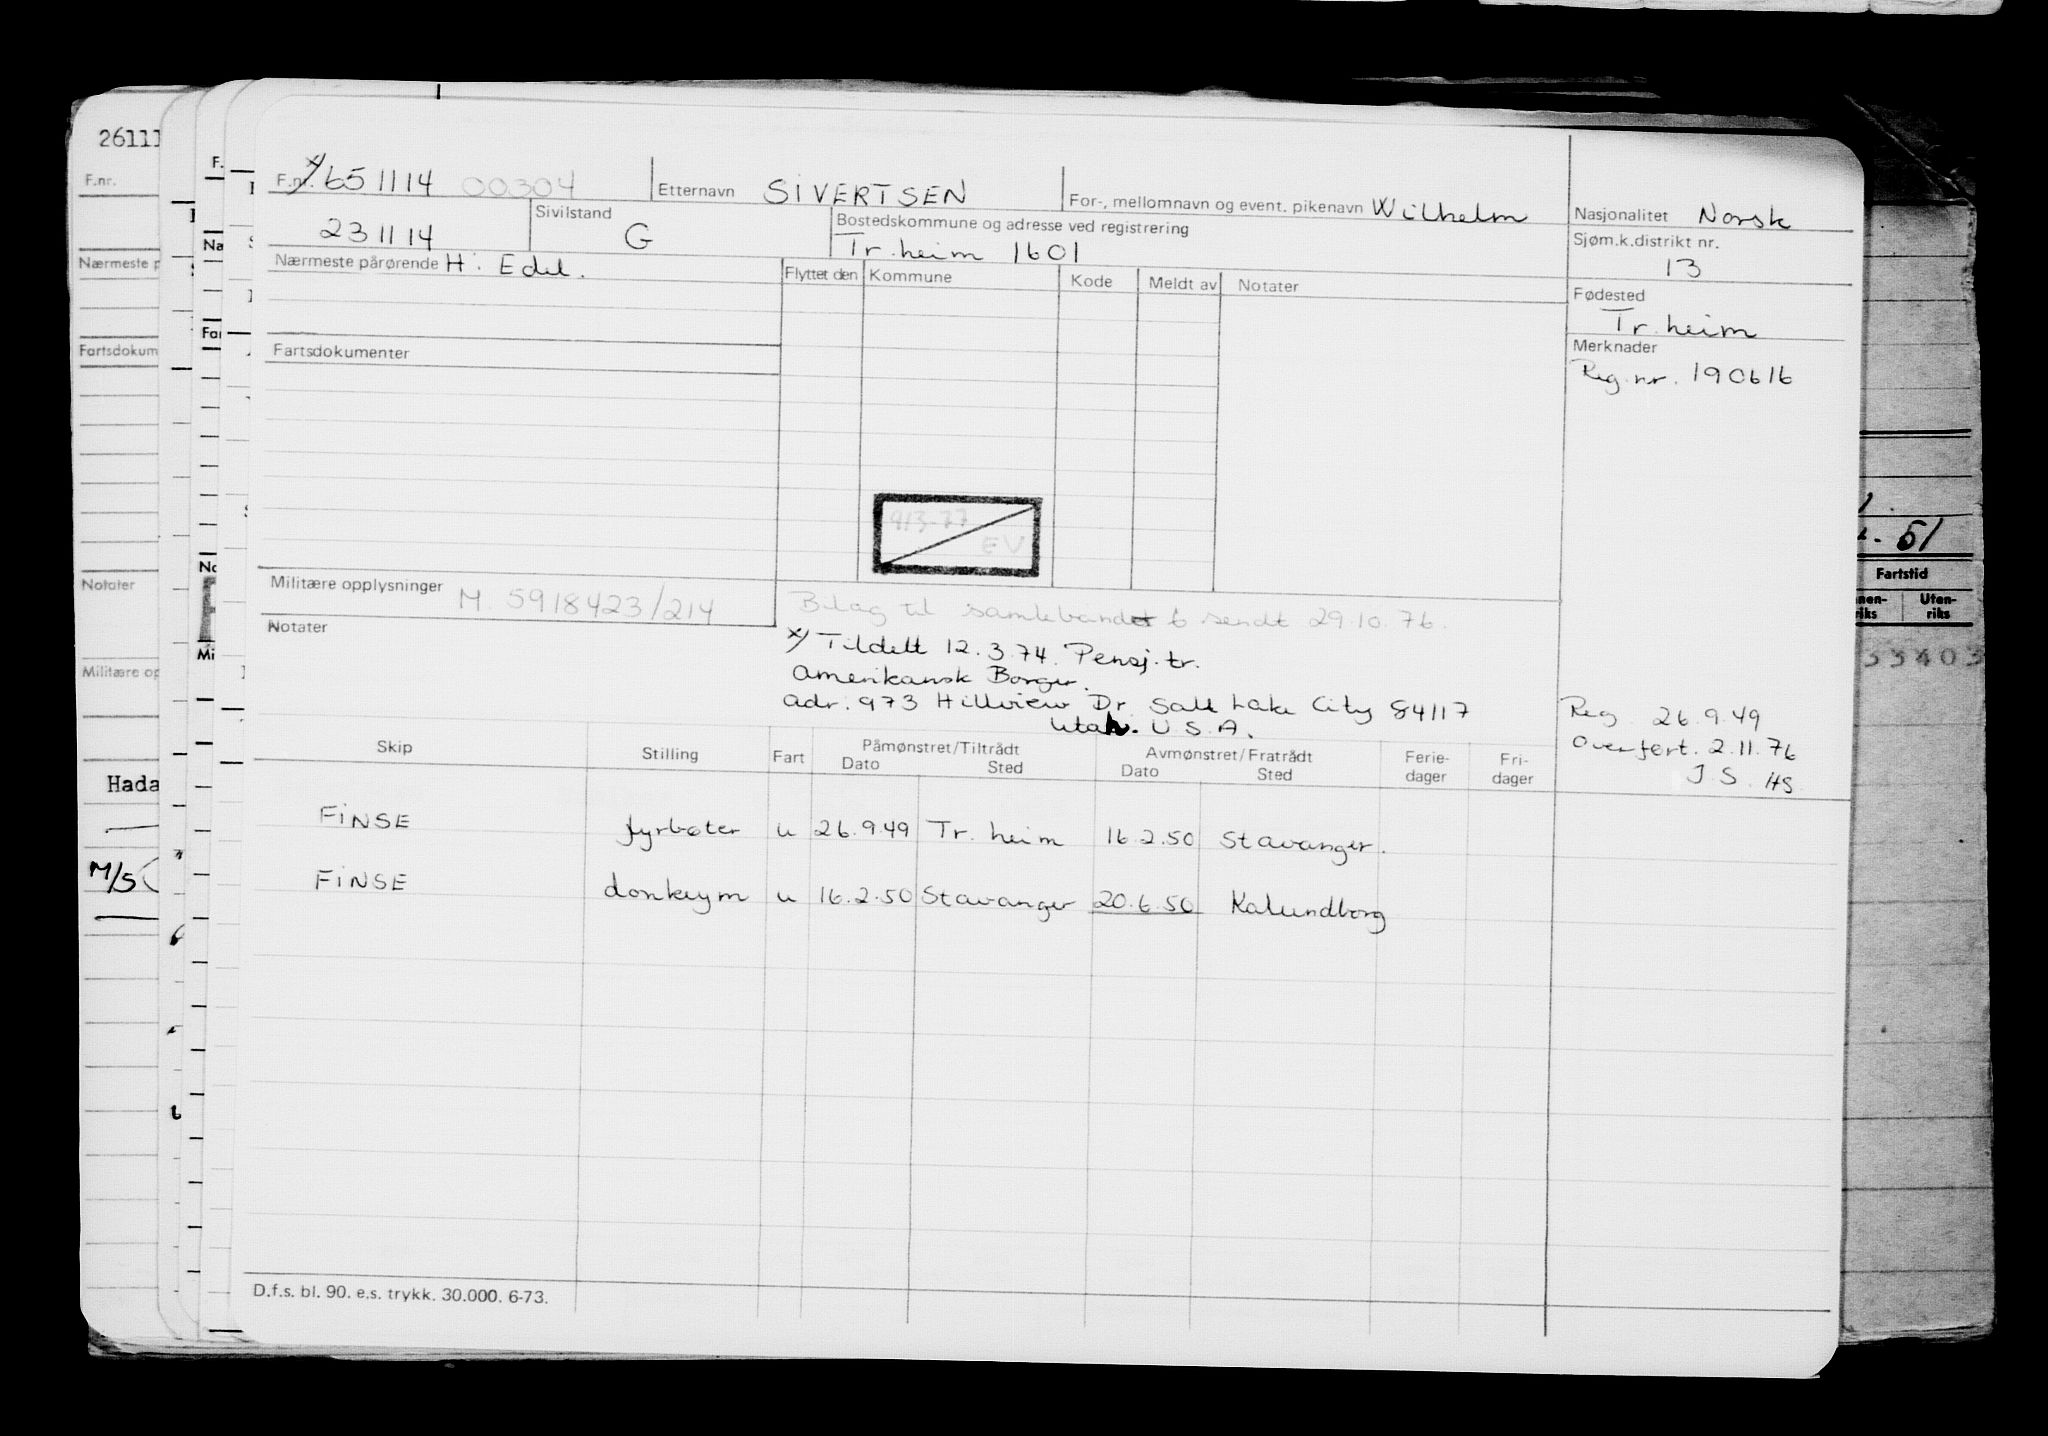 26111
F.nr.
x/ 651114 00304
Etternavn SIVERTSEN
For-, mellomnavn og event. pikenavn Wilhelm
Nasjonalitet Norsk
231114
Sivilstand
G
Bostedskommune og adresse ved registrering
Tr.heim 1601
Sjøm.k.distrikt nr.
13
Nærmeste pårørende H. Edel.
Flyttet den Kommune Kode Meldt av Notater
Fødested
Tr.heim
Fartsdokumenter
Merknader
Reg.nr. 190616
413-77
EV
Militære opplysninger M. 5918423/214
Bilag til samlebandet 6 sendt 29.10.76.
Notater
x/ Tildelt 12.3.74. Pensj.tr.
Amerikansk Borger.
adr: 973 Hillview Dr. Salt Lake City 84117
Utah. U.S.A.
Reg 26.9.49
Overført. 2.11.76
J.S. HS
Skip Stilling Fart Påmønstret/Tiltrådt Avmønstret/Fratrådt Ferie-dager Fri-dager
Dato Sted Dato Sted
FINSE fyrbøter u 26.9.49 Tr.heim 16.2.50 Stavanger.
FINSE donkeym u 16.2.50 Stavanger 20.6.50 Kalundborg
D.f.s. bl. 90. e.s. trykk. 30.000. 6-73.
F.nr.
Nærmeste p
Fartsdokum
Notater
Militære op
Hada
M/S
F.
Na
Far
No
Mi
51
Fartstid
nen-riks Uten-riks
33403